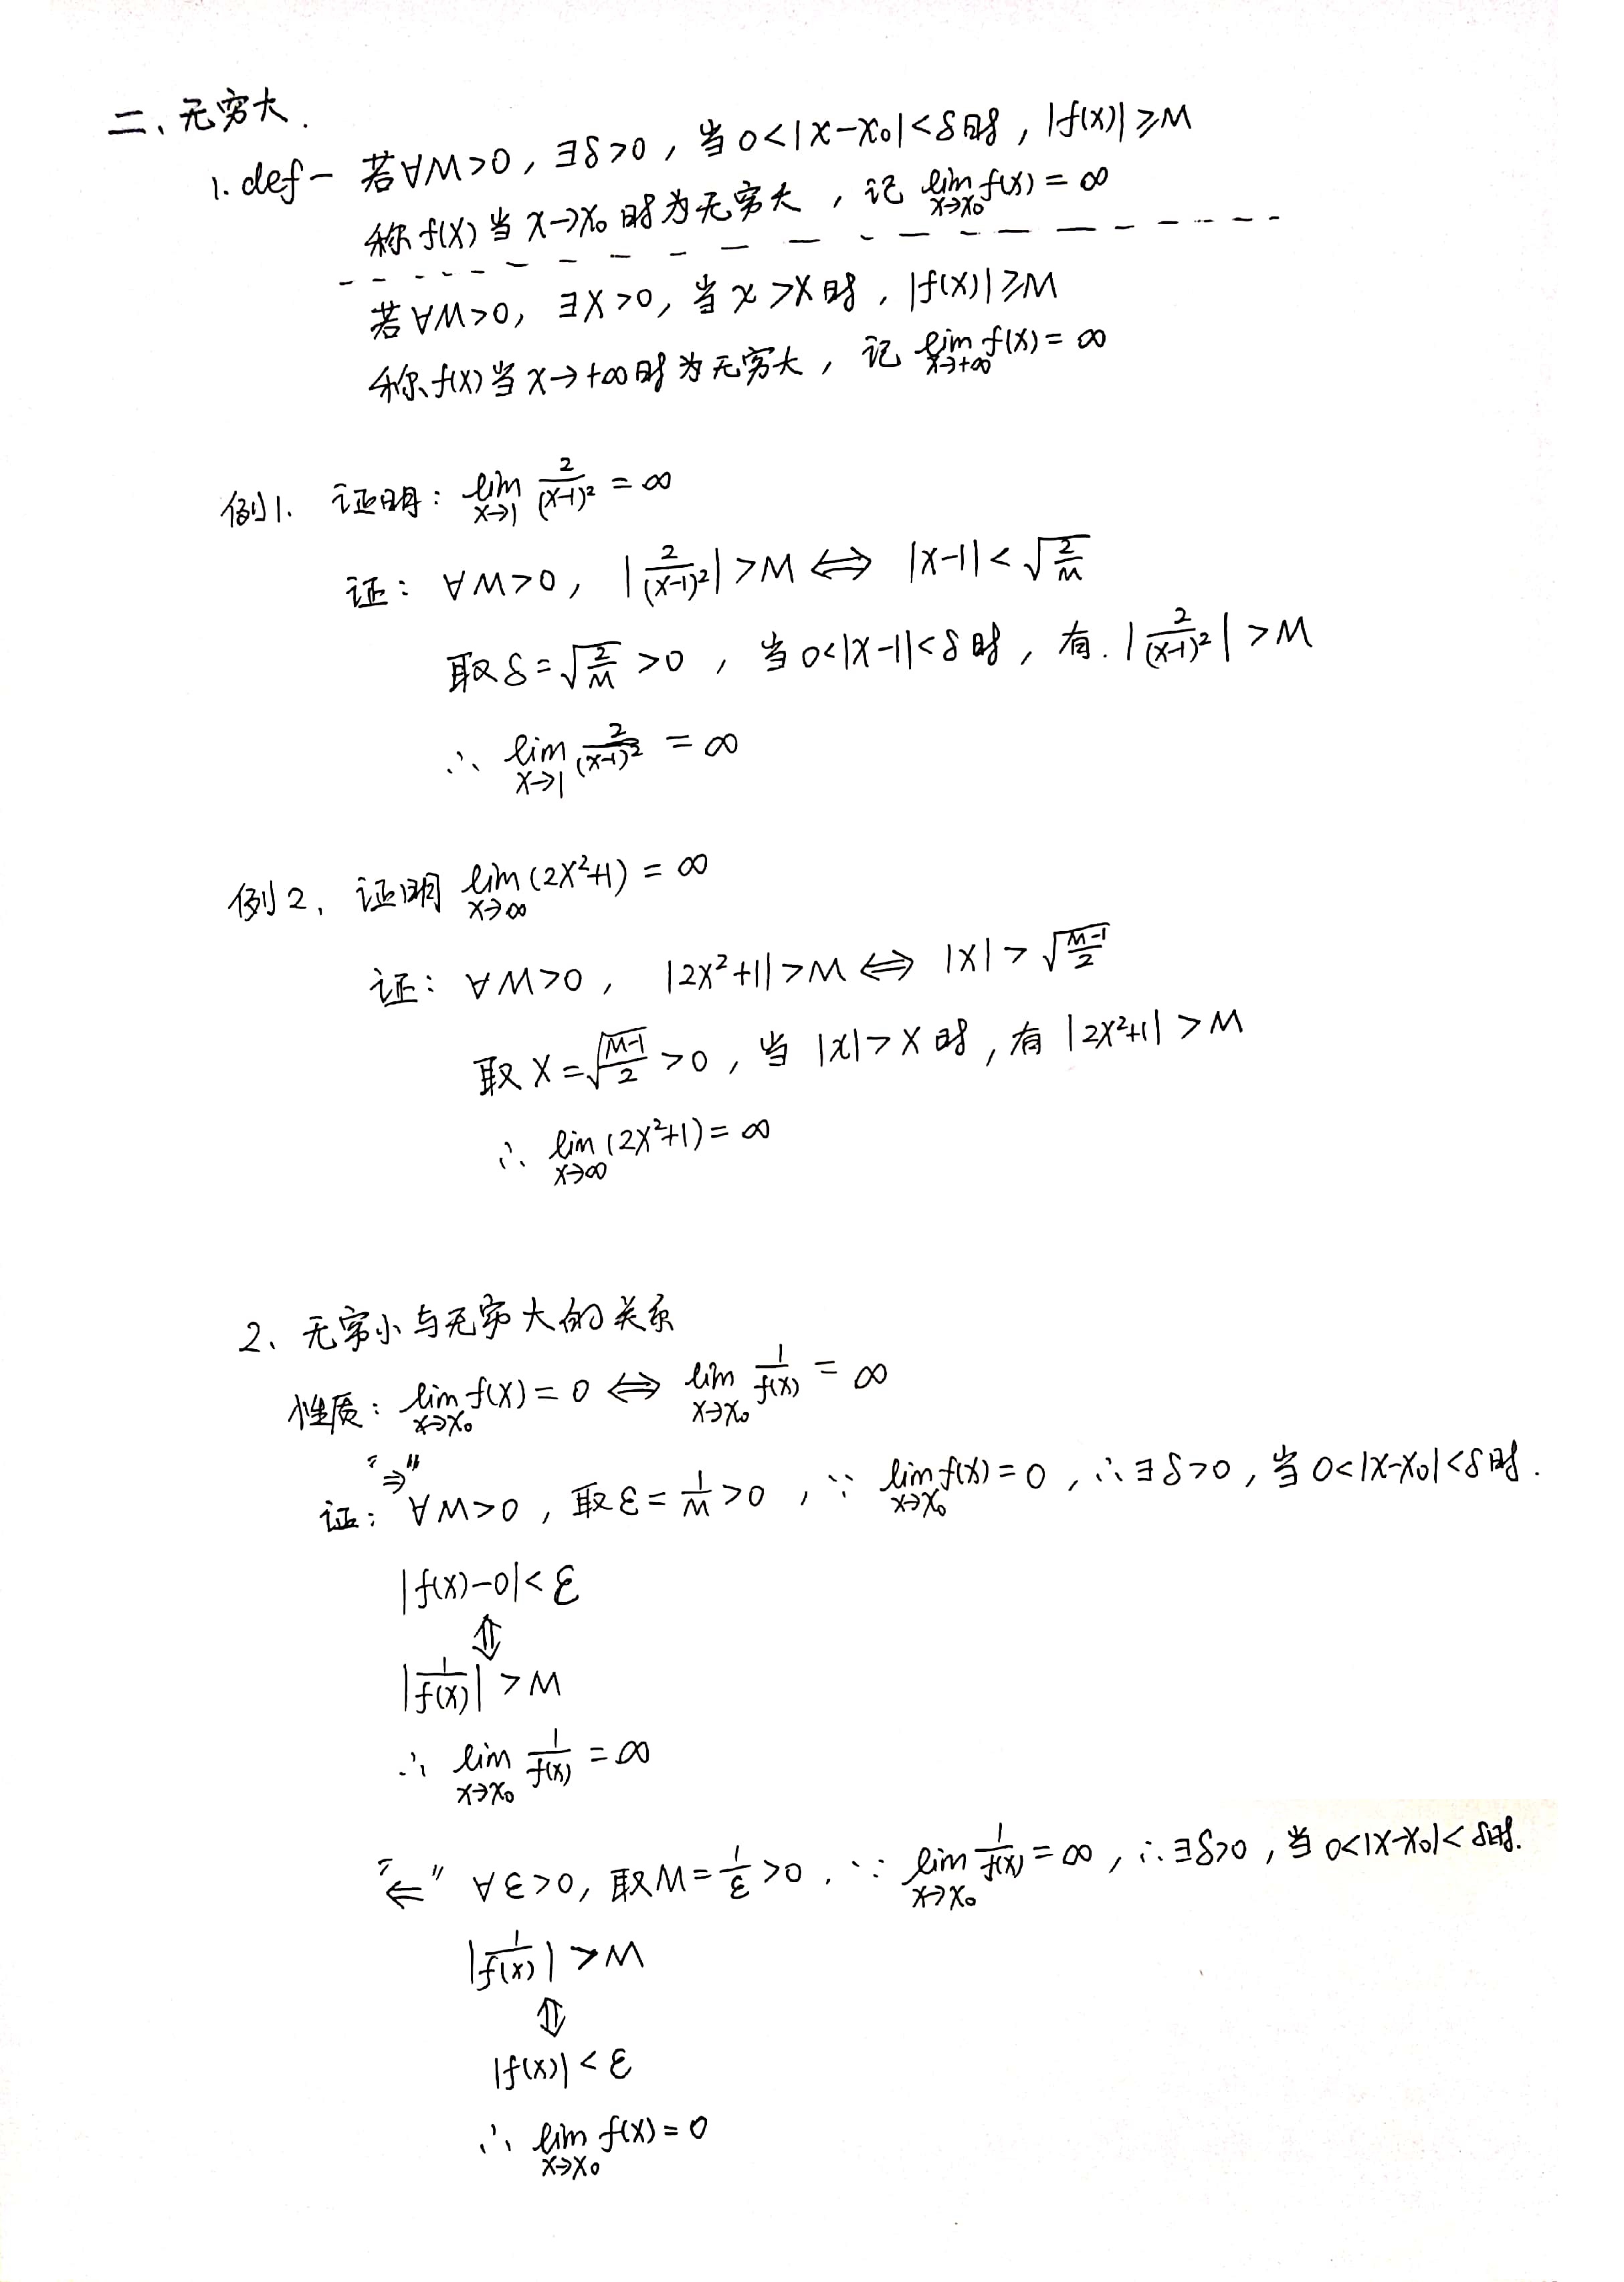 二、无穷大.
1. def - 若∀M>0, ∃δ>0, 当0<|x-x₀|<δ时, |f(x)|≥M
称f(x)当x→x₀时为无穷大, 记 lim_{x→x₀} f(x)=∞
若∀M>0, ∃X>0, 当x>X时, |f(x)|≥M
称f(x)当x→+∞时为无穷大, 记 lim_{x→+∞} f(x)=∞
例1. 证明: lim_{x→1} 2/(x-1)² = ∞
证: ∀M>0, |2/(x-1)²|>M ⇔ |x-1|<√(2/M)
取δ=√(2/M)>0, 当0<|x-1|<δ时, 有. |2/(x-1)²|>M
∴ lim_{x→1} 2/(x-1)² = ∞
例2, 证明 lim_{x→∞} (2x²+1) = ∞
证: ∀M>0, |2x²+1|>M ⇔ |x|>√((M-1)/2)
取X=√((M-1)/2)>0, 当|x|>X时, 有|2x²+1|>M
∴ lim_{x→∞} (2x²+1)=∞
2、无穷小与无穷大的关系
性质: lim_{x→x₀} f(x)=0 ⇔ lim_{x→x₀} 1/f(x) = ∞
证: "⇒" ∀M>0, 取ε=1/M>0, ∵ lim_{x→x₀} f(x)=0, ∴∃δ>0, 当0<|x-x₀|<δ时.
|f(x)-0|<ε
⇕
|1/f(x)|>M
∴ lim_{x→x₀} 1/f(x) = ∞
"⇐" ∀ε>0, 取M=1/ε>0, ∵ lim_{x→x₀} 1/f(x)=∞, ∴∃δ>0, 当0<|x-x₀|<δ时.
|1/f(x)|>M
⇕
|f(x)|<ε
∴ lim_{x→x₀} f(x)=0